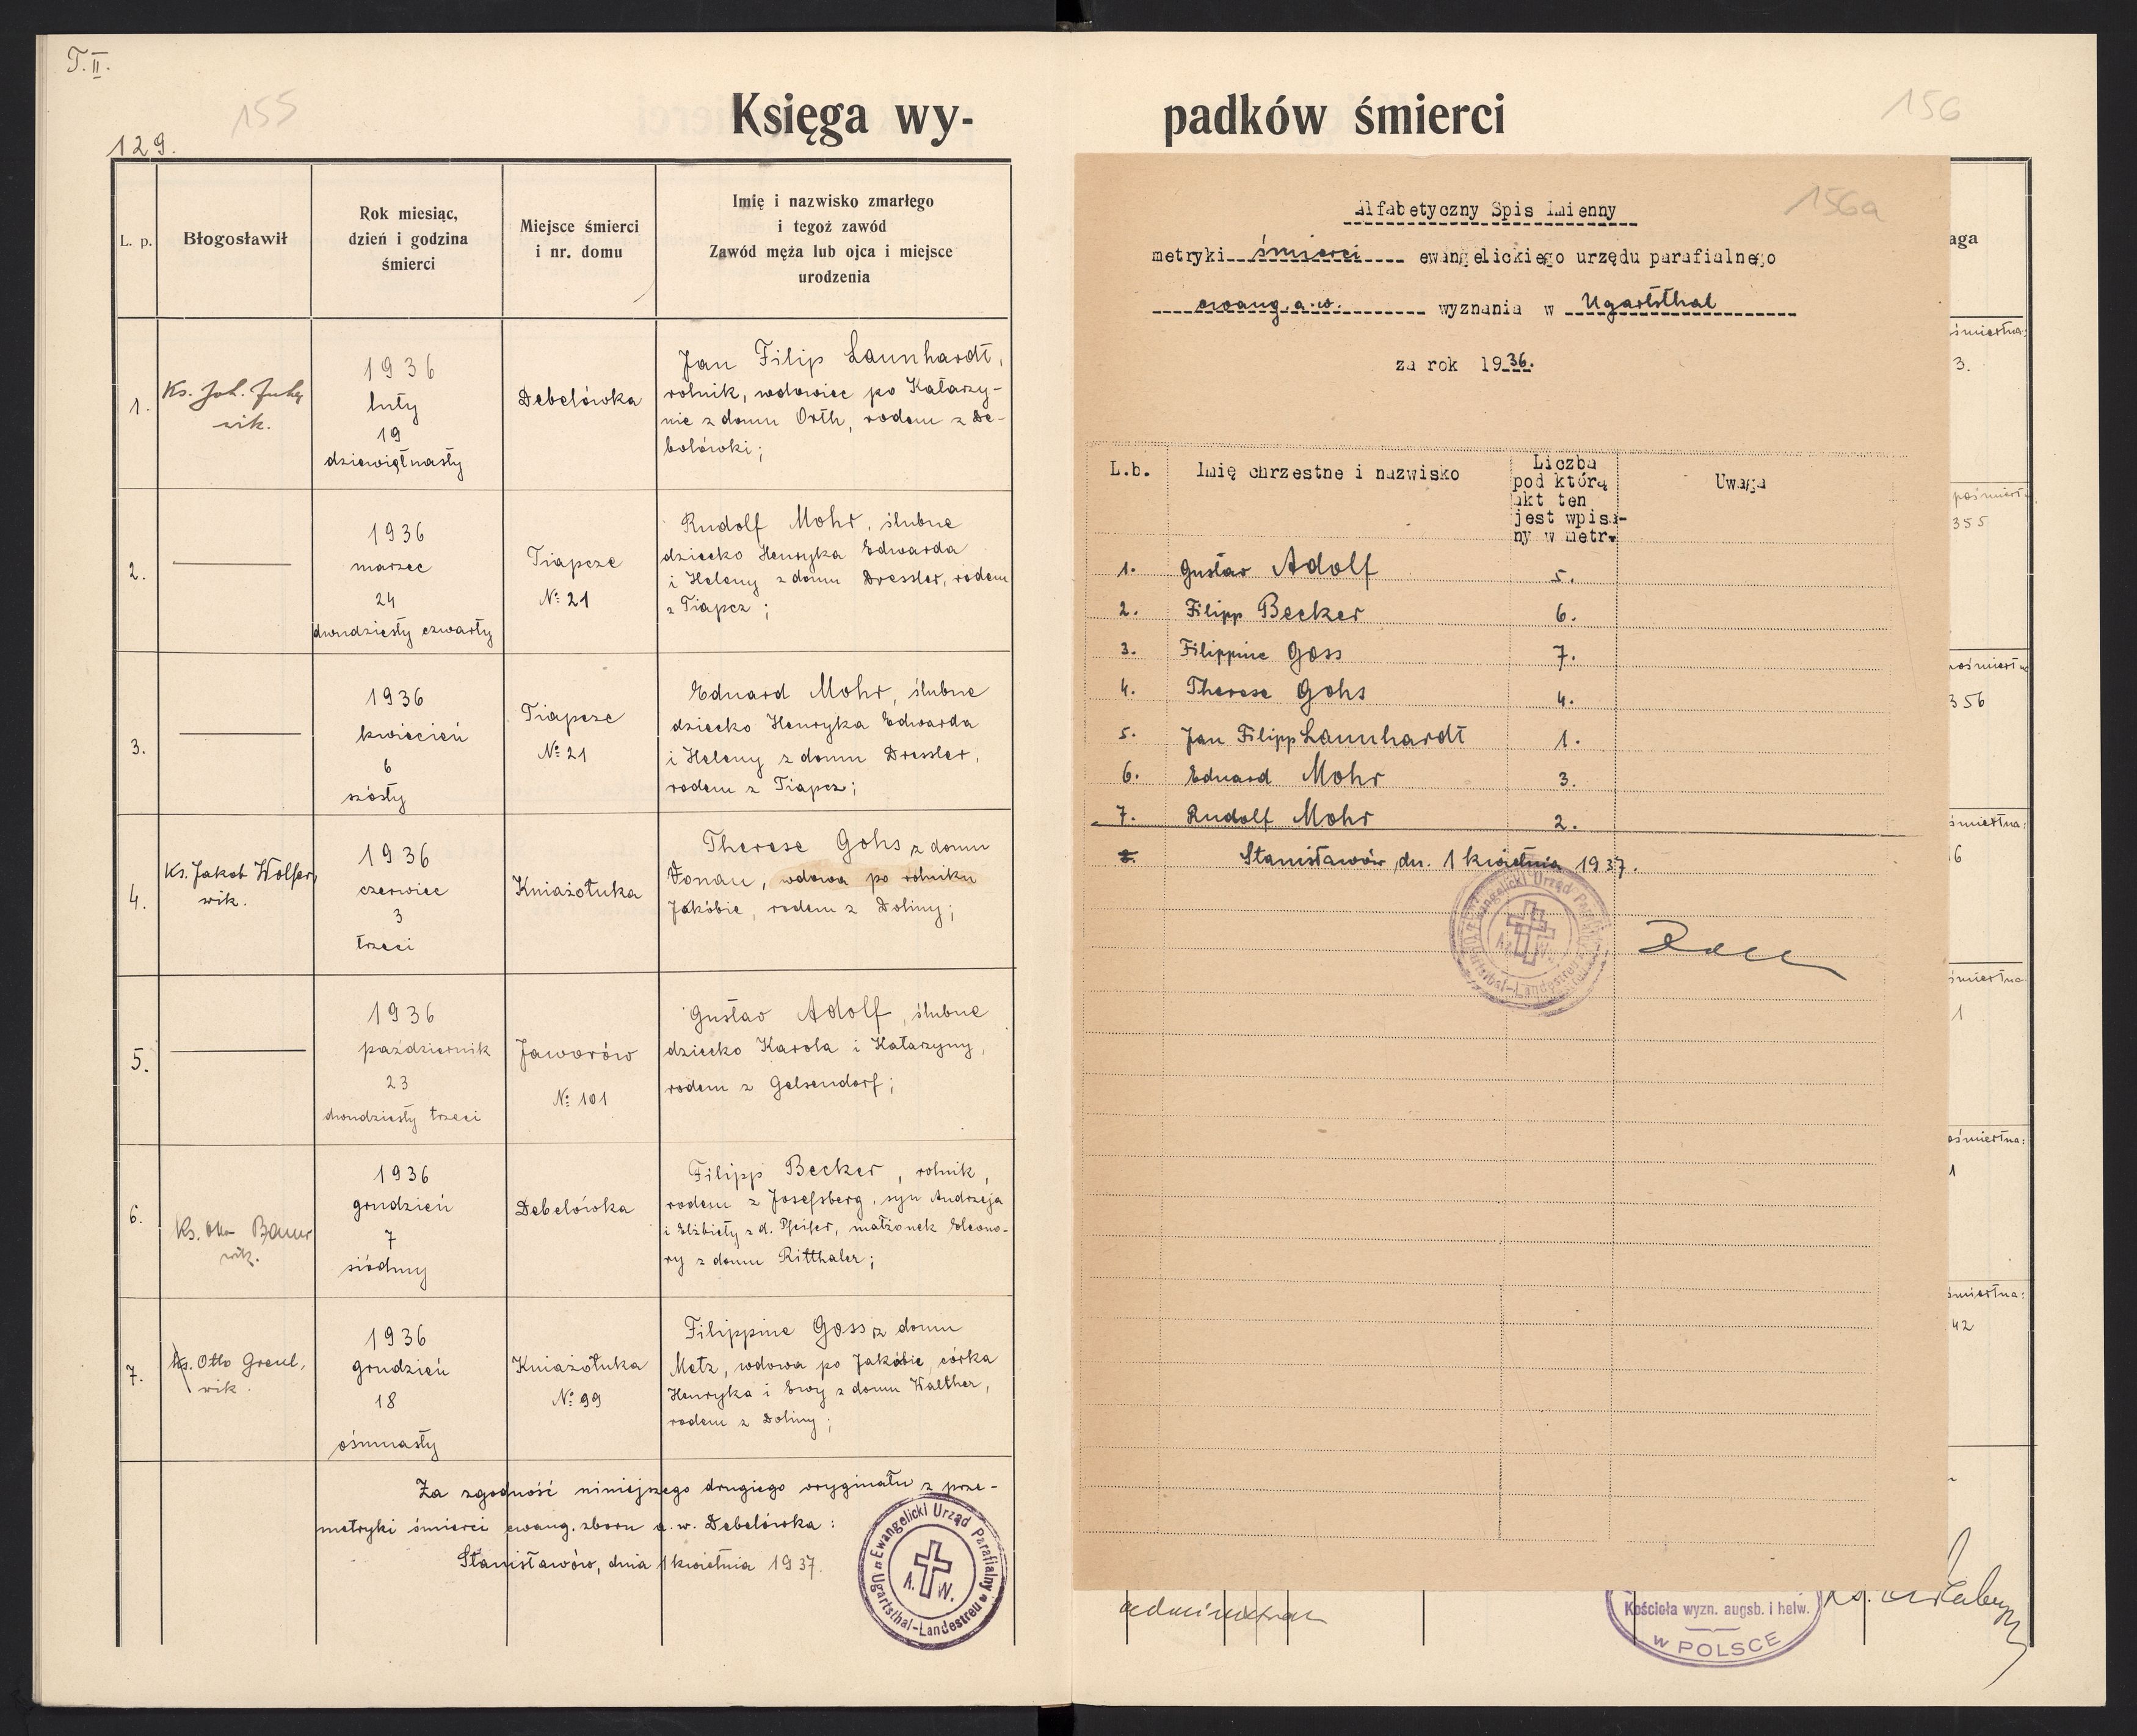 T. II.
155
129.
Księga wy-
L. p.
Błogosławił
Rok miesiąc,
dzień i godzina
śmierci
Miejsce śmierci
i nr. domu
Imię i nazwisko zmarłego
i tegoż zawód
Zawód męża lub ojca i miejsce
urodzenia
1.
Ks. Joh.
wik.
1936
luty
19
dziewiętnasty
Debelówka
Jan Filip Launhardt,
rolnik, wdowiec po Katarzy-
nie z domu Orth, rodem z De-
bolówki;
2.
1936
marzec
24
dwudziesty czwarty
Tiapcze
№ 21
Rudolf Mohr, ślubne
dziecko Henryka Edwarda
i Heleny z domu Dressler, rodem
z Tiapcz;
3.
1936
kwiecień
6
szósty
Tiapcze
№ 21
Eduard Mohr, ślubne
dziecko Henryka Edwarda
i Heleny z domu Dressler,
rodem z Tiapcz;
4.
Ks. Jakob Wolfer,
wik.
1936
czerwiec
3
trzeci
Kniażołuka
Therese Gohs, z domu
Donau, wdowa po rolniku
Jakóbie, rodem z Doliny;
5.
1936
październik
23
dwudziesty trzeci
Jaworów
№ 101
Gustav Adolf, ślubne
dziecko Karola i Katarzyny,
rodem z Gelsendorf;
6.
Ks. Otto Bauer
wik.
1936
grudzień
7
siódmy
Debelówka
Filipp Becker, rolnik,
rodem z Josefsberg, syn Andrzeja
i Elżbiety z d. Pfeifer, małżonek Eleono-
ry z domu Ritthaler;
7.
Ks. Otto Greul,
wik.
1936
grudzień
18
ośmnasty
Kniażołuka
№ 99
Filippine Goss, z domu
Metz, wdowa po Jakóbie, córka
Henryka i Ewy z domu Walther,
rodem z Doliny;
Za zgodność niniejszego drugiego oryginału z prze-
metryki śmierci ewang. zboru a. w. Debelówka:
Stanisławów, dnia 1 kwietnia 1937.
Ewangelicki Urząd Parafialny w
A. W.
Ugartsthal-Landestreu
padków śmierci
156
156a
Alfabetyczny Spis Imienny
metryki śmierci ewangelickiego urzędu parafialnego
ewang. a. w. wyznania w Ugartsthal
za rok 1936.
L.b.
Imię chrzestne i nazwisko
Liczba
pod którą
akt ten
jest wpisa-
ny w metr.
Uwaga
1. Gustav Adolf 5.
2. Filipp Becker 6.
3. Filippine Goss 7.
4. Therese Gohs 4.
5. Jan Filipp Launhardt 1.
6. Eduard Mohr 3.
7. Rudolf Mohr 2.
8. Stanisławów, dn. 1 kwietnia 1937.
Ewangelicki Urząd Parafialny
A. W.
Ugartsthal-Landestreu
aga
śmiertna:
3.
pośmiert
355
pośmiertna
356
śmiertna:
6
śmiertna
1
ośmiertna:
1
śmiertna:
42
Kościoła wyzn. augsb. i helw.
w POLSCE